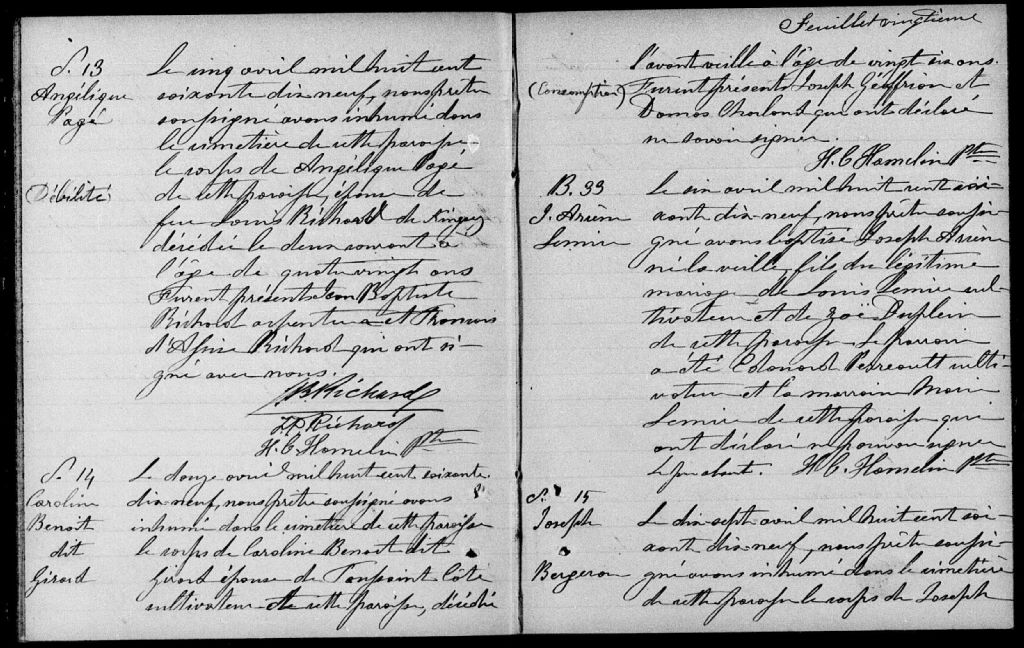 S. 13
Angélique
Pagé
(Débilité)
Le cinq avril mil huit cent
soixante dix neuf, nous prêtre
soussigné avons inhumé dans
le cimetière de cette paroisse
le corps de Angélique Pagé
de cette paroisse, épouse de
feu Louis Richard de
décédée le deux courant à
l'âge de quatre vingt ans
Furent présents Jean Baptiste
Richard arpenteur et François
d'Assise Richard qui ont si-
gné avec nous.
JB Richard
Richard
H. C Hamelin Ptre
S. 14
Caroline
Benoit
dit
Girard
Le douze avril mil huit cent soixante
dix-neuf, nous prêtre soussigné avons
inhumé dans le cimetière de cette paroisse
le corps de Caroline Benoit dit
Girard épouse de Toussaint Côté
cultivateur de cette paroisse, décédée
Feuillet vingtième
(Consomption)
l'avant veille à l'âge de vingt six ans.
Furent présents Joseph Geffrion et
Damas Charland qui ont déclaré
ne savoir signer.
H. C Hamelin Ptre
B. 33
J. Arsène
Lemire
Le six avril mil huit cent soi-
xante dix-neuf, nous prêtre soussi-
gné avons baptisé Joseph Arsène
né la veille, fils du légitime
mariage de Louis Lemire cul-
tivateur et de Zoé Duplein
de cette paroisse. Le parrain
a été Edouard Perreault culti-
vateur et la marraine Marie
Lemire de cette paroisse qui
ont déclaré ne pouvoir signer
H. C. Hamelin Ptre
S. 15
Joseph
Bergeron
Le dix-sept avril mil huit cent soi-
xante dix-neuf, nous prêtre soussi-
gné avons inhumé dans le cimetière
de cette paroisse le corps de Joseph